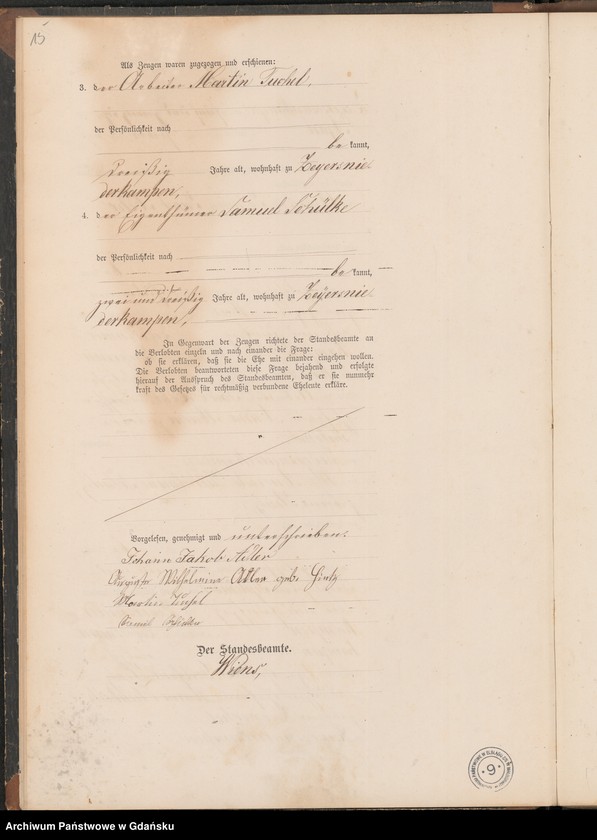 15
Als Zeugen waren zugezogen und erschienen:
3. der Arbeiter Martin Tuchel,
der Persönlichkeit nach
be kannt,
dreißig Jahre alt, wohnhaft zu Zeyersnie-
derkampen,
4. der Eigenthümer Samuel Schülke
der Persönlichkeit nach
be kannt,
zwei und dreißig Jahre alt, wohnhaft zu Zeyersnie-
derkampen,
In Gegenwart der Zeugen richtete der Standesbeamte an
die Verlobten einzeln und nach einander die Frage:
ob sie erklären, daß sie die Ehe mit einander eingehen wollen.
Die Verlobten beantworteten diese Frage bejahend und erfolgte
hierauf der Ausspruch des Standesbeamten, daß er sie nunmehr
kraft des Gesetzes für rechtmäßig verbundene Eheleute erkläre.
Vorgelesen, genehmigt und unterschrieben:
Johann Jakob Adler
Auguste Wilhelmine Adler geb: Hintz
Martin Tuchel
Der Standesbeamte.
Wiens,
9
Archiwum Państwowe w Gdańsku